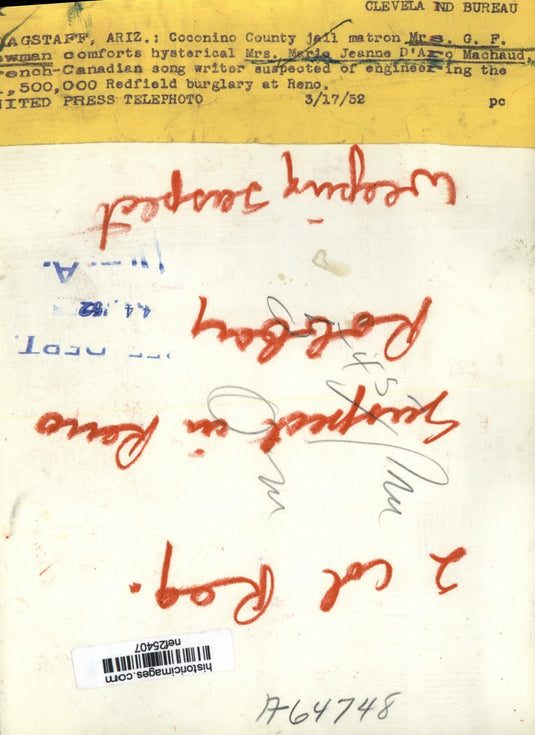 CLEVELA ND BUREAU
AGSTAFF, ARIZ.: Coconino County jail matron Mrs. G. F.
ewman comforts hysterical Mrs. Marie Jeanne D'Arc Machaud,
rench-Canadian song writer suspected of engineer-ing the
,500,000 Redfield burglary at Reno.
NITED PRESS TELEPHOTO 3/17/52 pc
2 col Rag.
Suspect in Reno
Robbery
Weeping Suspect
DEPT.
52
A.
historicimages.com
nef25407
A64748